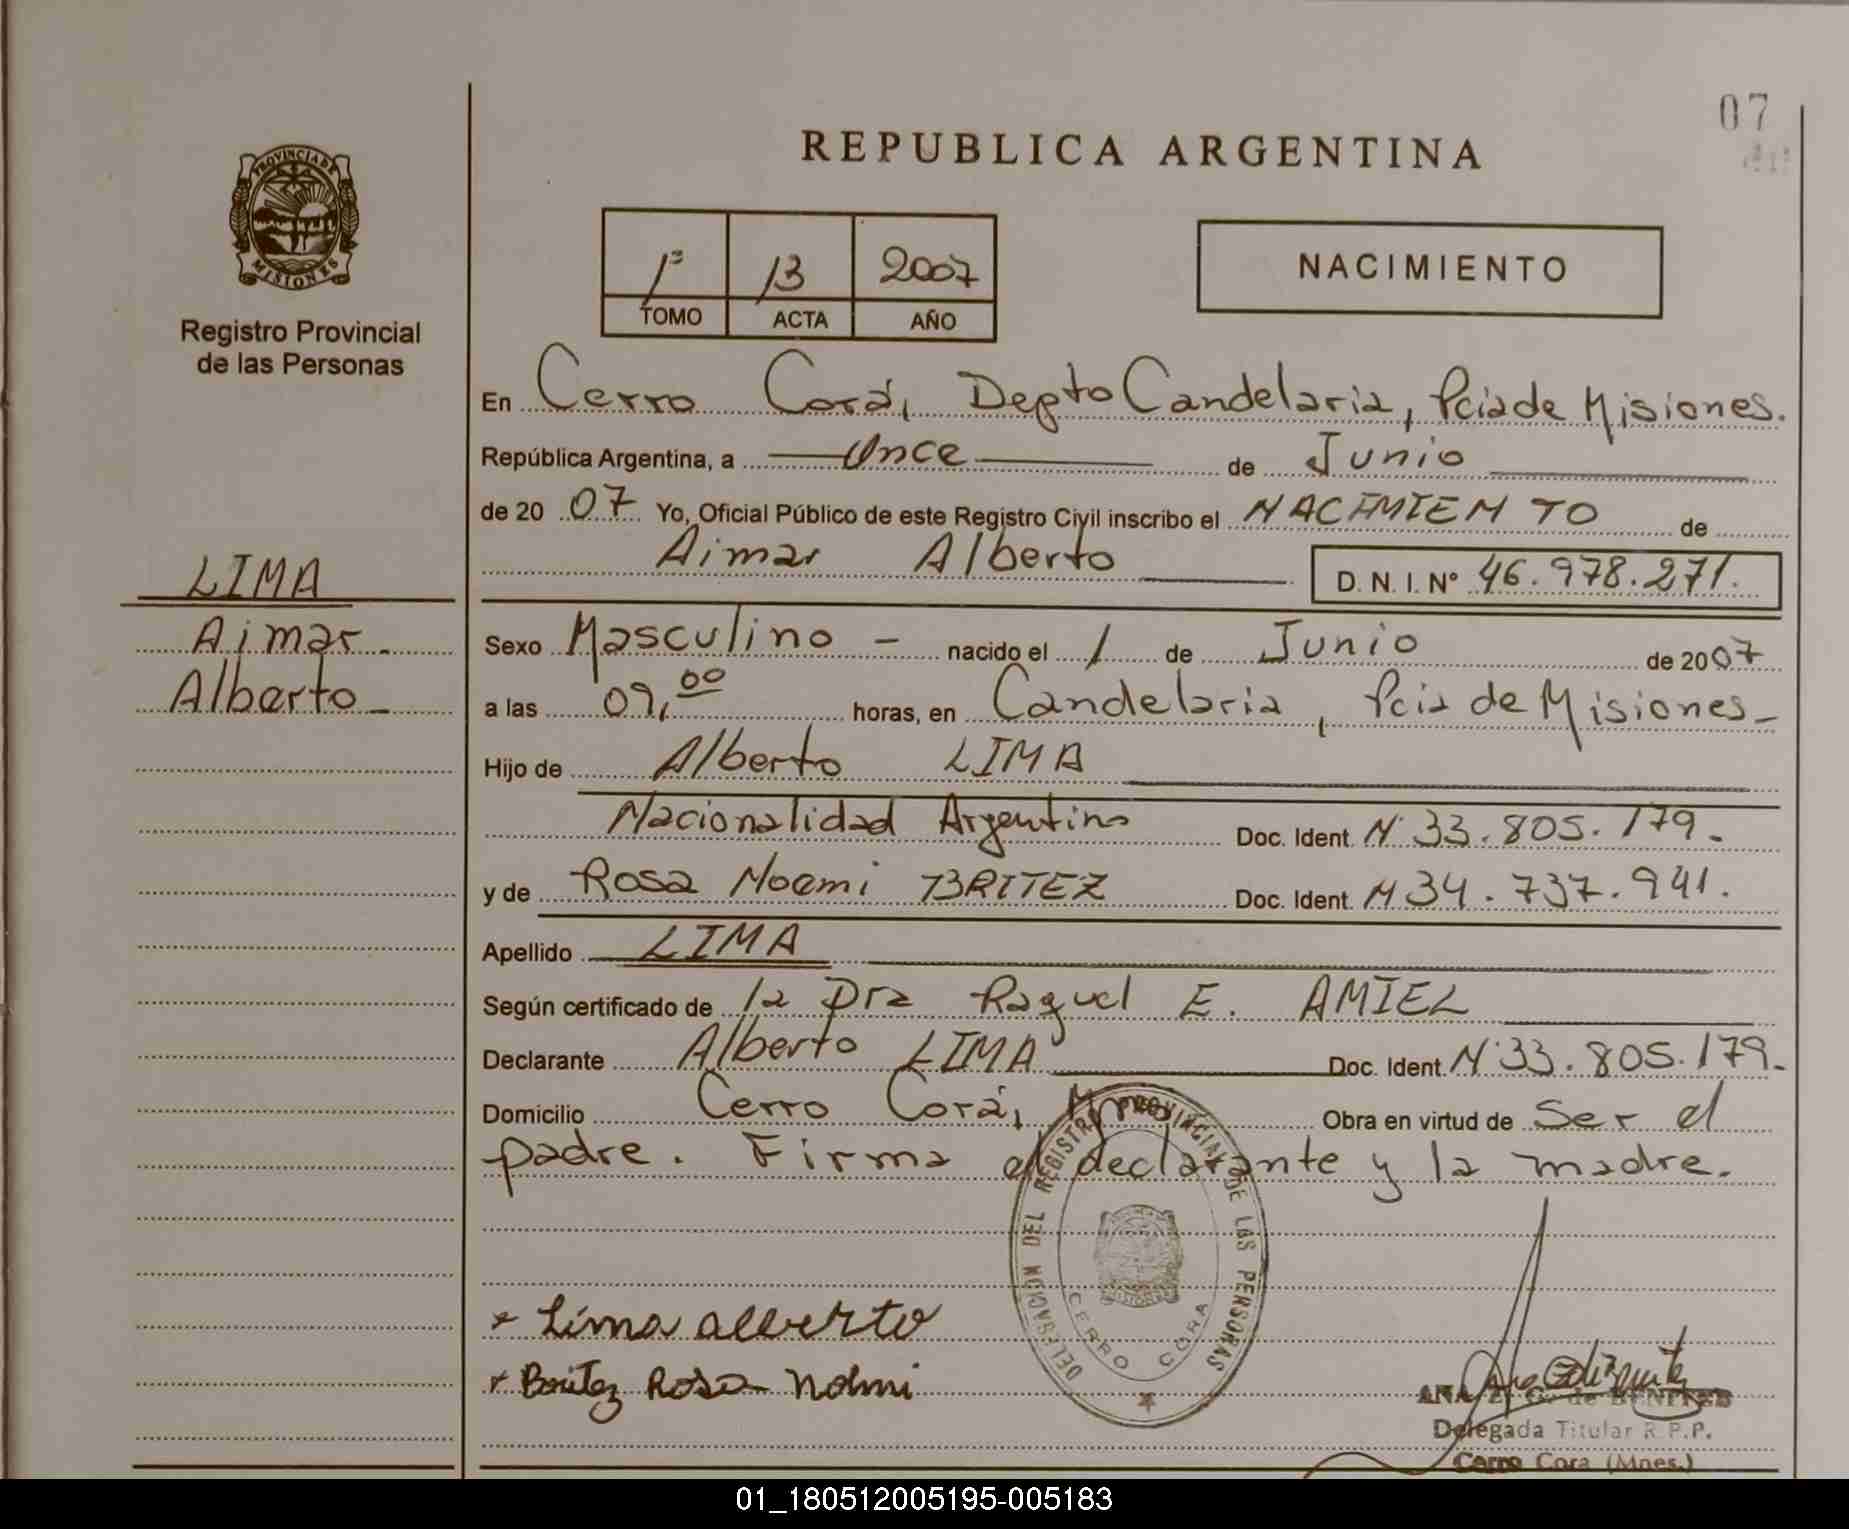 07
REPUBLICA ARGENTINA
PROVINCIA DE
MISIONES
Registro Provincial
de las Personas
1º 13 2007
TOMO ACTA AÑO
NACIMIENTO
En Cerro Corá, Depto Candelaria, Pcia de Misiones.
República Argentina, a Once de Junio
de 2007 Yo, Oficial Público de este Registro Civil inscribo el NACIMIENTO de
Aimar Alberto D.N.I. Nº 46.978.271.
LIMA
Aimar
Alberto
Sexo Masculino - nacido el 1 de Junio de 2007
a las 09,00 horas, en Candelaria, Pcia de Misiones
Hijo de Alberto LIMA
Nacionalidad Argentina Doc. Ident. Nº 33.805.179.
y de Rosa Noemi BRITEZ Doc. Ident. Nº 34.737.941.
Apellido LIMA
Según certificado de la Dra Raquel E. AMIEL
Declarante Alberto LIMA Doc. Ident. Nº 33.805.179.
Domicilio Cerro Corá, Mnes Obra en virtud de Ser el
padre. Firma el declarante y la madre.
DELEGACION DEL REGISTRO PROVINCIAL DE LAS PERSONAS
CERRO CORA
Lima alberto
Britez Rosa Nohmi
ANA Z. G. de BENITEZ
Delegada Titular R.P.P.
Cerro Cora (Mnes.)
01_180512005195-005183